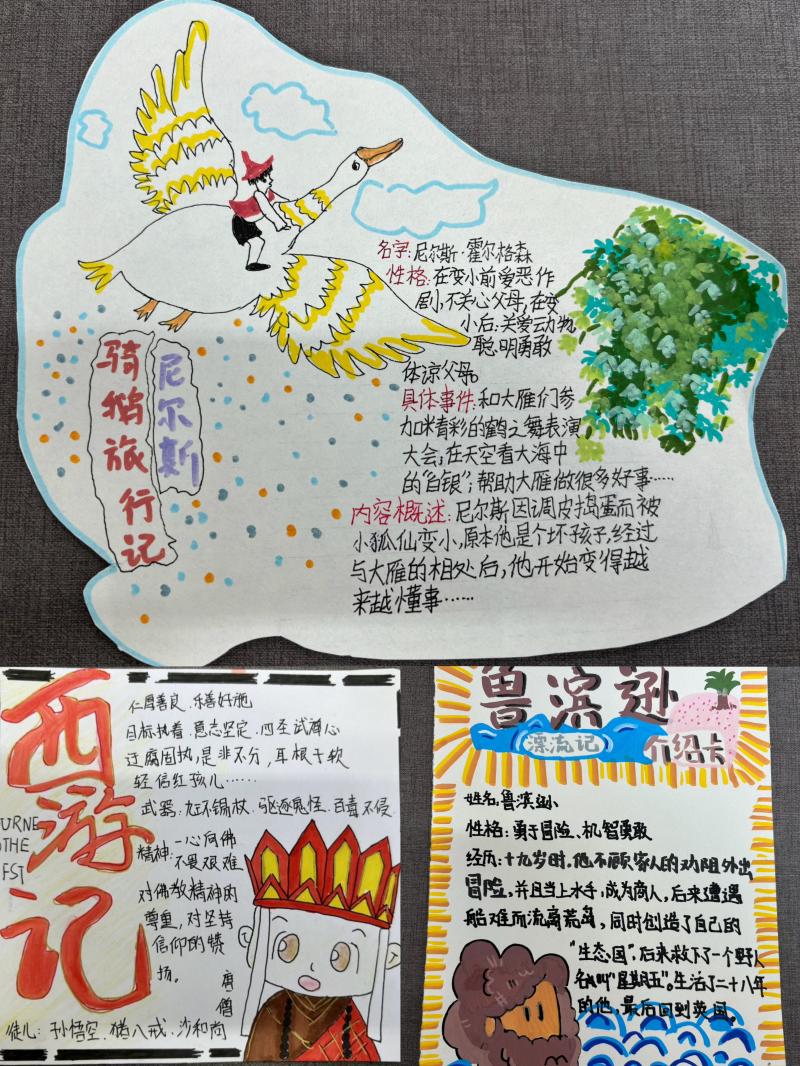 尼尔斯
骑鹅旅行记
名字:尼尔斯·霍尔格森
性格:在变小前爱恶作
剧,不关心父母,在变
小后:关爱动物
聪明勇敢
体谅父母。
具体事件:和大雁们参
加精彩的鹤之舞表演
大会,在天空看大海中
的“白银”;帮助大雁做很多好事……
内容概述:尼尔斯因调皮捣蛋而被
小狐仙变小,原本他是个坏孩子,经过
与大雁的相处后,他开始变得越
来越懂事……
西游记
URNE
THE
EST
仁厚善良、乐善好施
目标执着、意志坚定、四圣试禅心
迂腐固执,是非不分,耳根子软
轻信红孩儿……
武器:九环锡杖、驱逐鬼怪、百毒不侵
精神:一心向佛
不畏艰难
对佛教精神的
尊重,对坚持
信仰的赞
扬。
唐僧
徒儿:孙悟空、猪八戒、沙和尚
鲁滨逊
漂流记 介绍卡
姓名:鲁滨逊
性格:勇于冒险、机智勇敢
经历:十九岁时,他不顾家人的劝阻外出
冒险,并且当上水手,成为商人,后来遭遇
船难而流离荒岛,同时创造了自己的
“生态国”,后来救下了一个野人
名叫“星期五”。生活了二十八年
的他,最后回到英国。